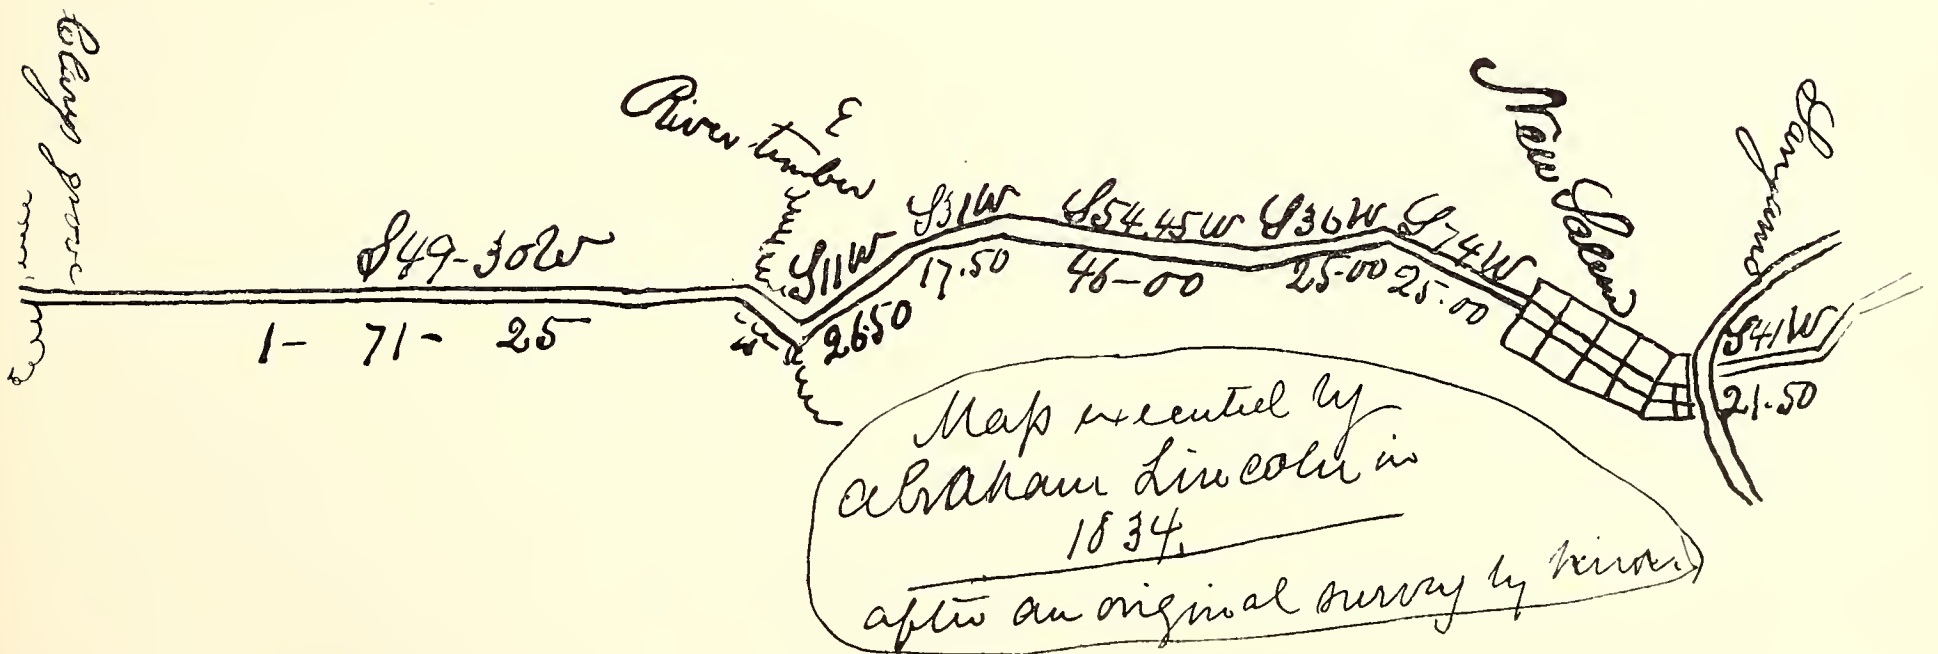 Clary's grove
S49-30W
1- 71- 25
E
River timber
S11W
26.50
S31W
17.50
S54.45W
46-00
S36W
25-00
S74W
25.00
New Salem
Sangamo
S41W
21.50
Map executed by
Abraham Lincoln in
1834.
after an original survey by